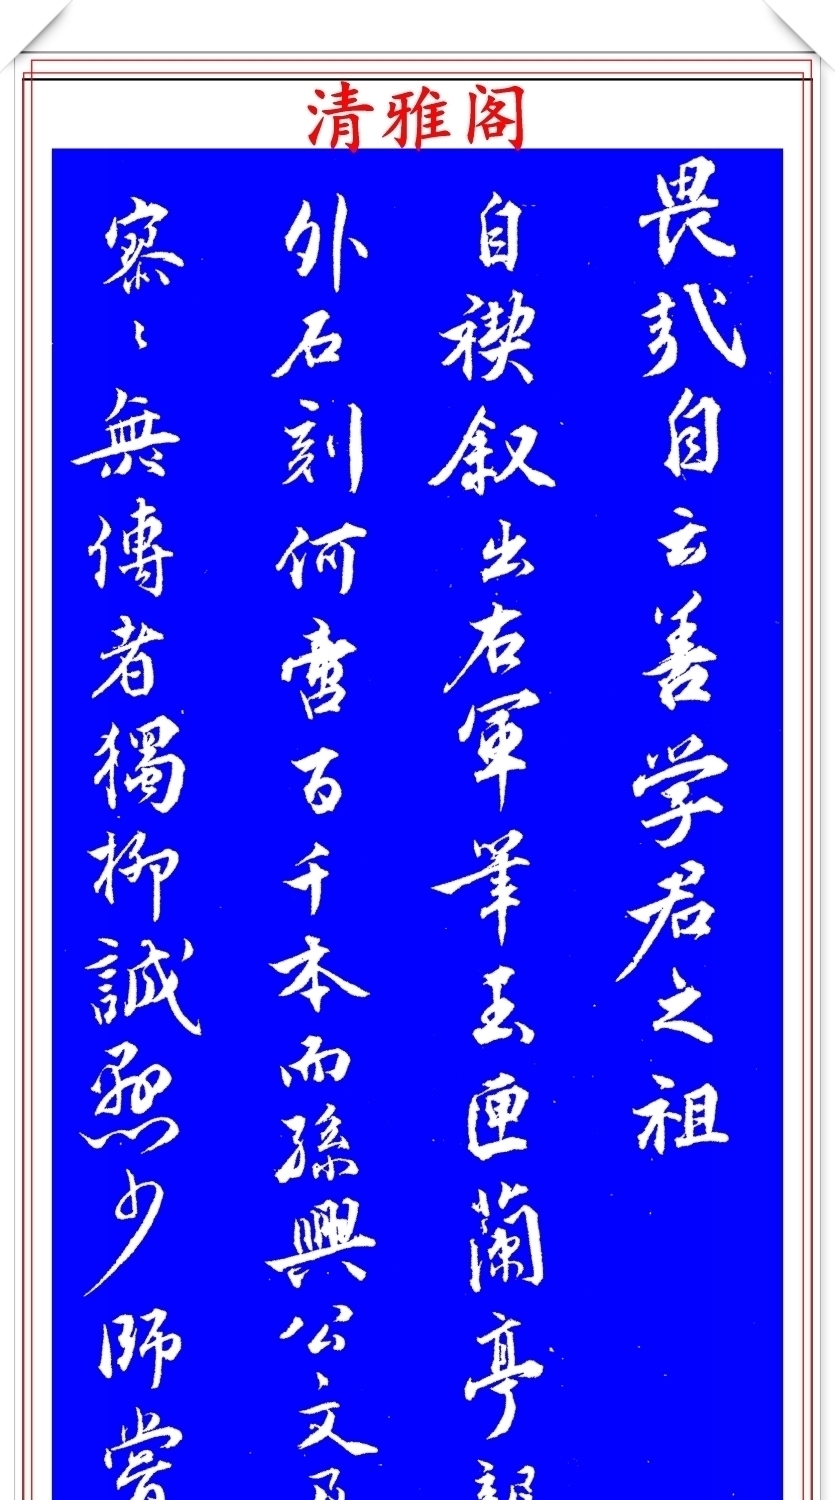 清雅阁
畏哉自云善学君之祖
自禊叙出右軍筆玉匣蘭亭
外石刻何啻百千本而孫興公文
寥〻無傳者獨柳誠懸少師嘗